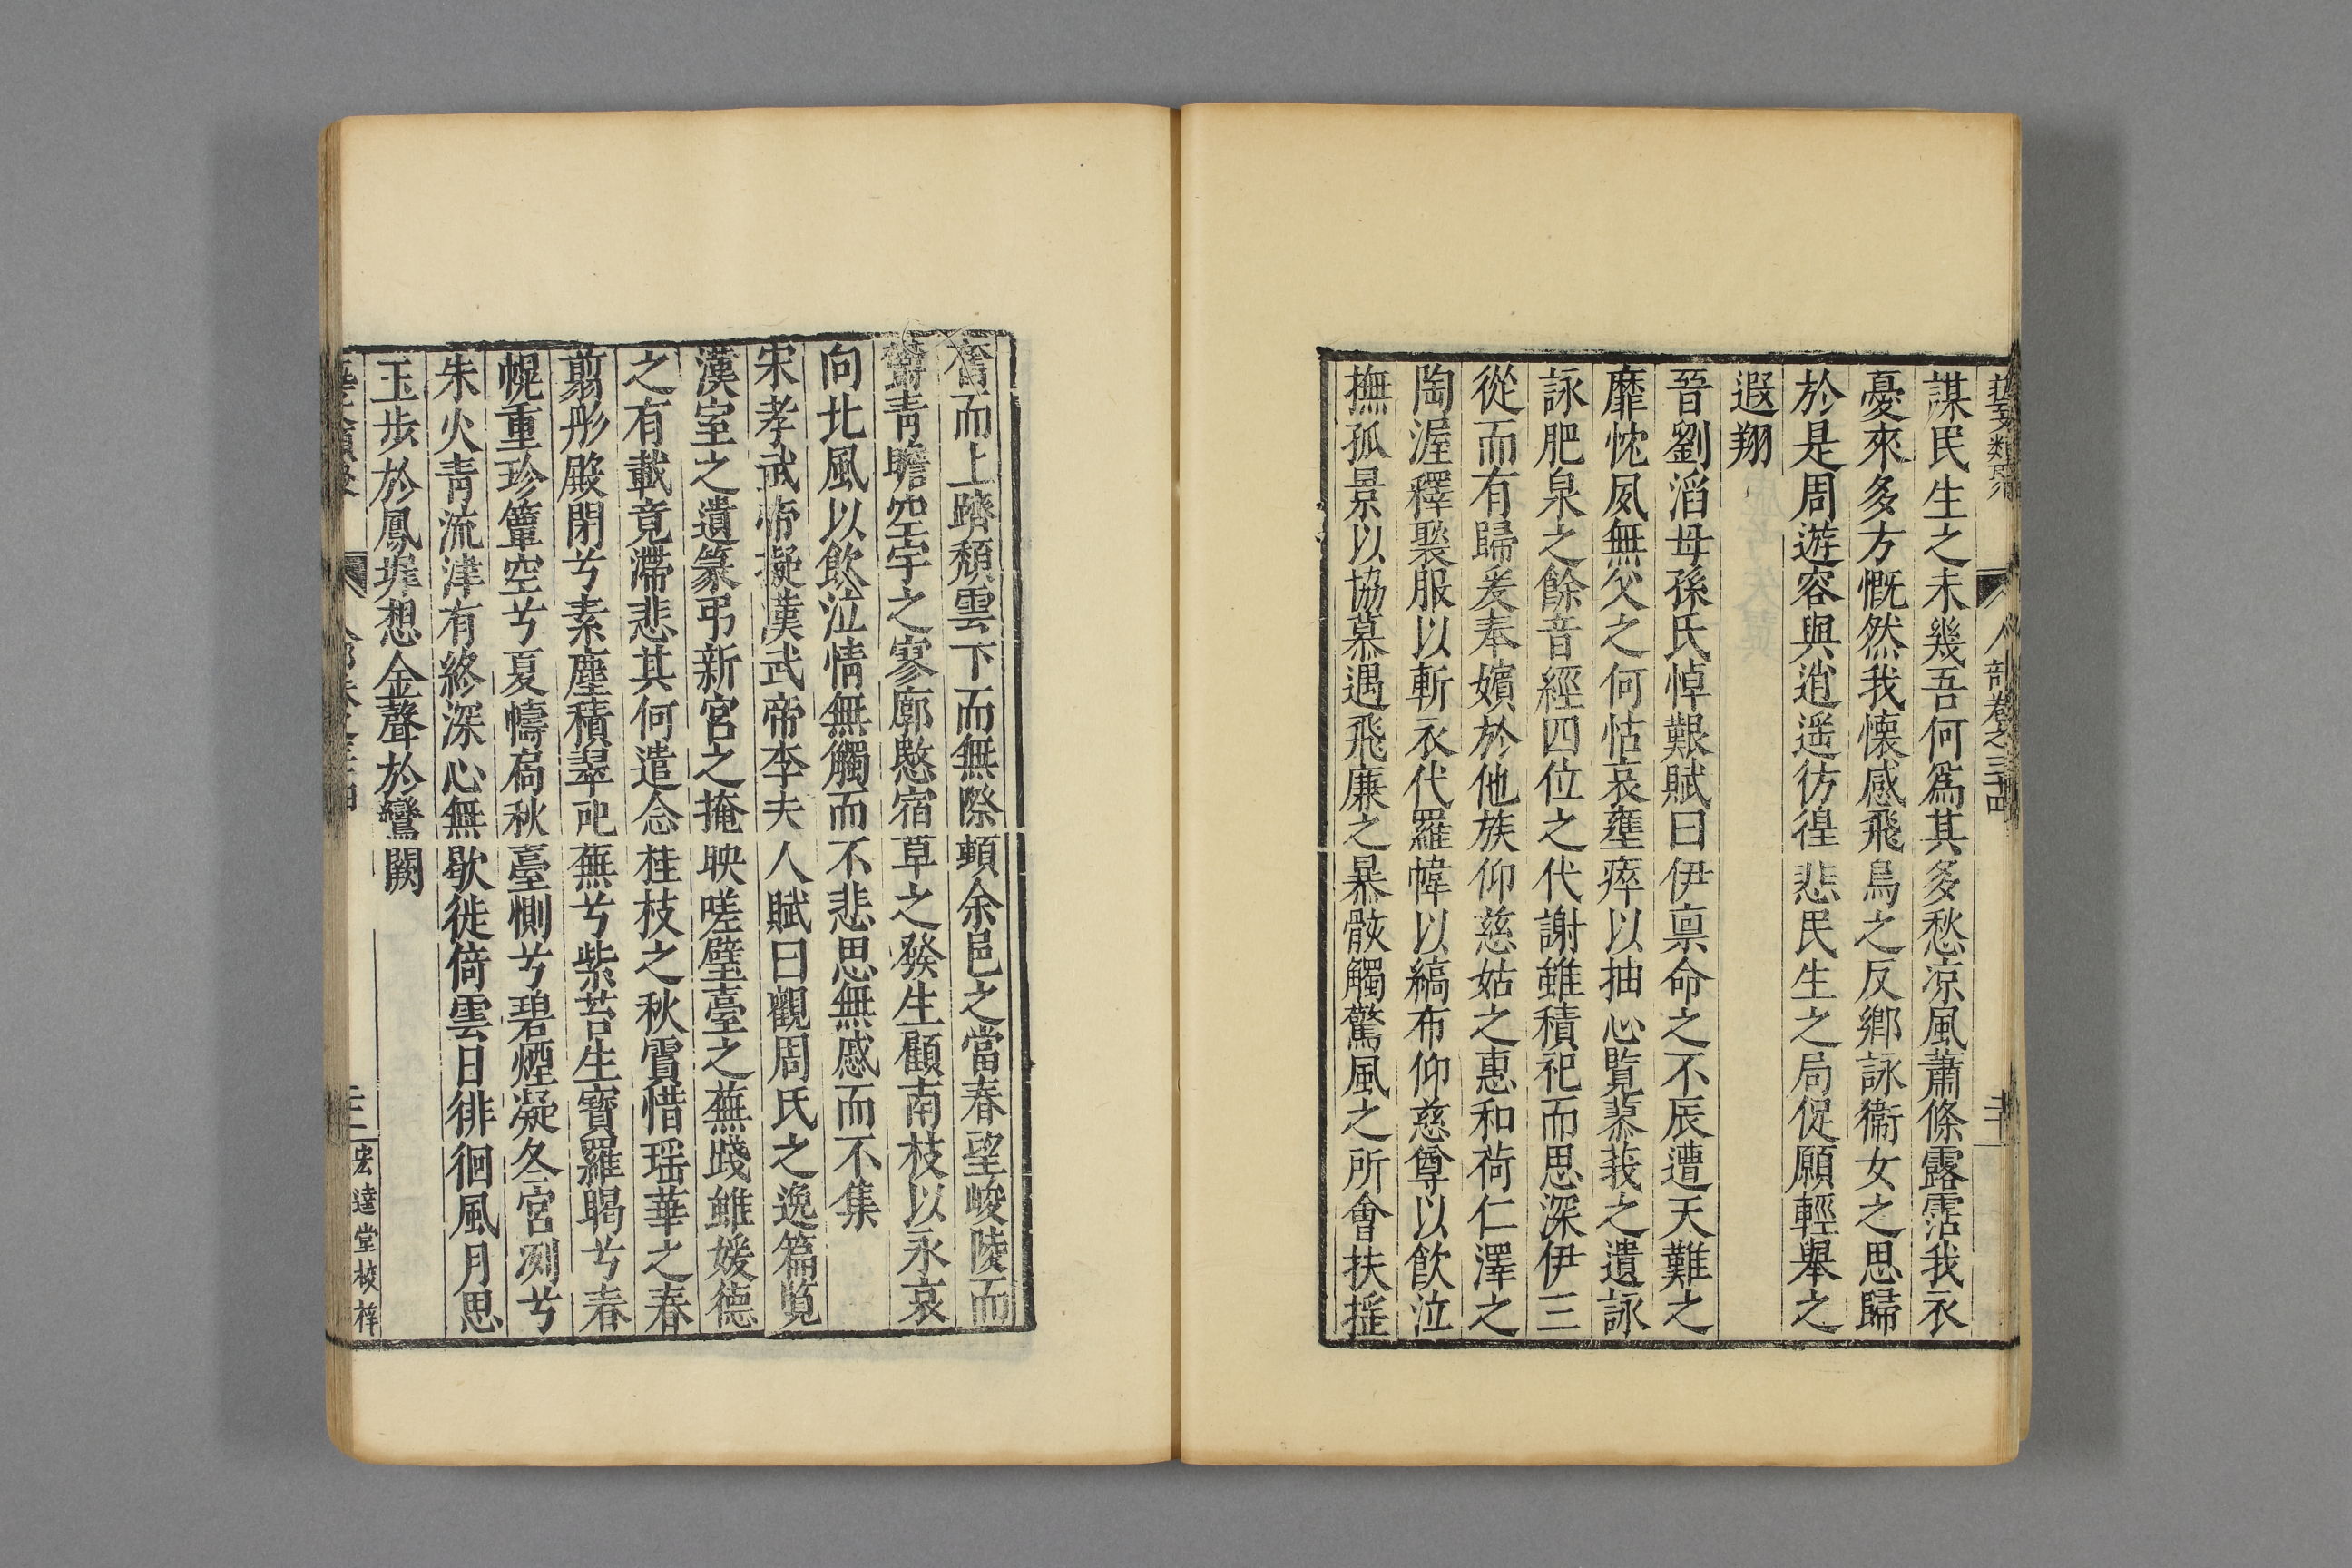 藝文類聚 人部卷之三十四
謀民生之未幾吾何為其多愁凉風蕭條露霑我衣
憂來多方慨然我懐感飛鳥之反鄉詠衞女之思歸
於是周遊容與逍遥彷徨悲民生之局促願輕舉之
遐翔
晉劉滔母孫氏悼艱賦曰伊禀命之不辰遭天難之
靡忱夙無父之何怙哀壅瘁以抽心覧蓼莪之遺詠
詠肥泉之餘音經四位之代謝雖積祀而思深伊三
從而有歸爰奉嬪於他族仰慈姑之惠和荷仁澤之
陶渥釋褧服以斬衣代羅幃以縞布仰慈尊以飲泣
撫孤景以協慕遇飛廉之暴骸觸驚風之所會扶揺
奮而上躋頽雲下而無際頓余邑之當春望峻陵而
鬱青瞻空宇之寥廓愍宿草之發生顧南枝以永哀
向北風以飲泣情無觸而不悲思無慼而不集
宋孝武帝擬漢武帝李夫人賦曰觀周氏之逸篇覧
漢室之遺篆弔新宮之掩映嗟璧臺之蕪踐雖媛德
之有載竟滯悲其何遣念桂枝之秋霣惜瑶華之春
翦彤殿閉兮素塵積翠戺蕪兮紫苔生寳羅暍兮春
幌重珍簟空兮夏幬扃秋臺惻兮碧煙凝冬宮冽兮
朱火青流津有終深心無歇徙倚雲日徘徊風月思
玉步於鳳墀想金聲於鸞闕
宏達堂校梓